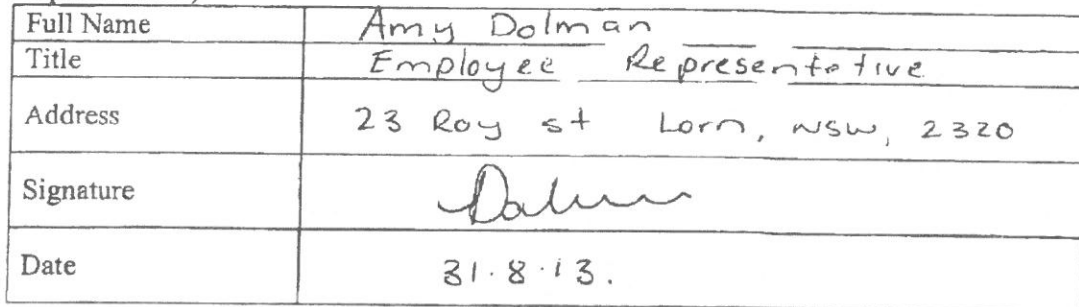 Full Name Amy Dolman
Title Employee Representative
Address 23 Roy st Lorn, NSW, 2320
Signature Dolman
Date 31.8.13.